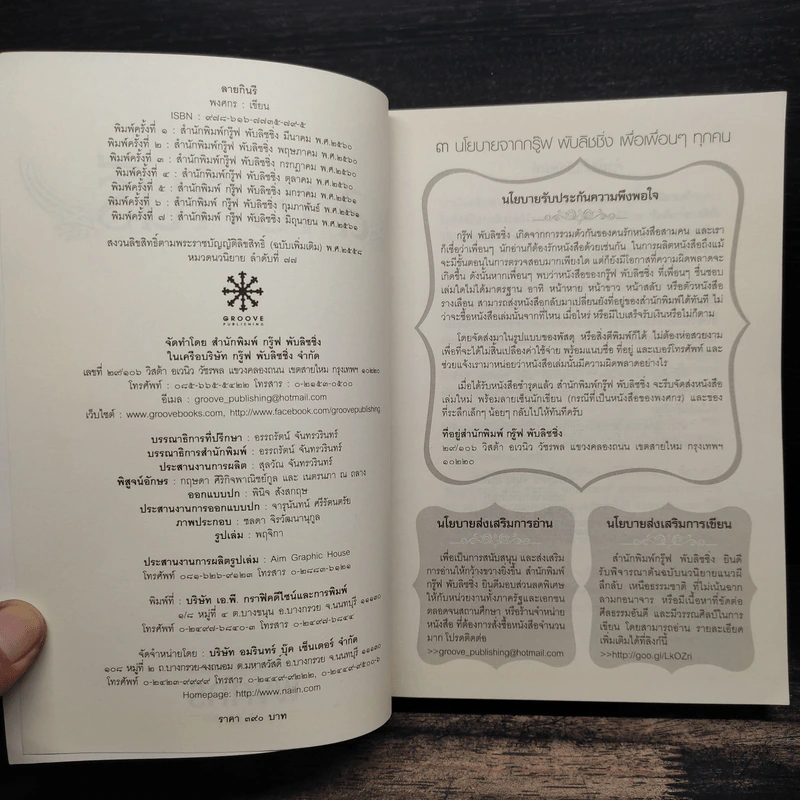 สายกินรี
พงศกร : เขียน
ISBN : ๙๗๘-๖๑๖-๗๗๓๕-๗๙-๕
พิมพ์ครั้งที่ ๑ : สำนักพิมพ์กรู๊ฟ พับลิชชิ่ง มีนาคม พ.ศ.๒๕๖๐
พิมพ์ครั้งที่ ๒ : สำนักพิมพ์กรู๊ฟ พับลิชชิ่ง พฤษภาคม พ.ศ.๒๕๖๐
พิมพ์ครั้งที่ ๓ : สำนักพิมพ์กรู๊ฟ พับลิชชิ่ง กรกฎาคม พ.ศ.๒๕๖๐
พิมพ์ครั้งที่ ๔ : สำนักพิมพ์กรู๊ฟ พับลิชชิ่ง ตุลาคม พ.ศ.๒๕๖๐
พิมพ์ครั้งที่ ๕ : สำนักพิมพ์ กรู๊ฟ พับลิชชิ่ง มกราคม พ.ศ.๒๕๖๑
พิมพ์ครั้งที่ ๖ : สำนักพิมพ์ กรู๊ฟ พับลิชชิ่ง กุมภาพันธ์ พ.ศ.๒๕๖๑
พิมพ์ครั้งที่ ๗ : สำนักพิมพ์ กรู๊ฟ พับลิชชิ่ง มิถุนายน พ.ศ.๒๕๖๑
สงวนลิขสิทธิ์ตามพระราชบัญญัติลิขสิทธิ์ (ฉบับเพิ่มเติม) พ.ศ.๒๕๕๘
หมวดนวนิยาย ลำดับที่ ๗๗
GROOVE
PUBLISHING
จัดทำโดย สำนักพิมพ์ กรู๊ฟ พับลิชชิ่ง
ในเครือบริษัท กรู๊ฟ พับลิชชิ่ง จำกัด
เลขที่ ๒๙/๑๐๖ วิสต้า อเวนิว วัชรพล แขวงคลองถนน เขตสายไหม กรุงเทพฯ ๑๐๒๒๐
โทรศัพท์ : ๐๘๕-๖๖๕-๕๔๒๒ โทรสาร : ๐-๒๑๕๓-๐๕๐๐
อีเมล : groove_publishing@hotmail.com
เว็บไซต์ : www.groovebooks.com, http://www.facebook.com/groovepublishing
บรรณาธิการที่ปรึกษา : อรรถรัตน์ จันทรวรินทร์
บรรณาธิการสำนักพิมพ์ : อรรถรัตน์ จันทรวรินทร์
ประสานงานการผลิต : สุลวัณ จันทรวรินทร์
พิสูจน์อักษร : กฤษดา ศิริกิจพาณิชย์กูล และ เนตรนภา ณ ถลาง
ออกแบบปก : พินิจ สังสกฤษ
ประสานงานการออกแบบปก : จารุนันทน์ ศรีรัตนตรัย
ภาพประกอบ : ชลดา จิรวัฒนานุกูล
รูปเล่ม : พฤจิกา
ประสานงานการผลิตรูปเล่ม : Aim Graphic House
โทรศัพท์ ๐๘๑-๖๒๖-๙๑๒๓ โทรสาร ๐-๒๘๘๓-๖๑๒๑
พิมพ์ที่ : บริษัท เอ.พี. กราฟิคดีไซน์และการพิมพ์
๑/๘ หมู่ที่ ๔ ต.บางขนุน อ.บางกรวย จ.นนทบุรี ๑๑๑๓๐
โทรศัพท์ ๐-๒๔๙๗-๖๘๔๐-๓ โทรสาร ๐-๒๔๙๗-๖๘๔๔
จัดจำหน่ายโดย : บริษัท อมรินทร์ บุ๊ค เซ็นเตอร์ จำกัด
๑๐๘ หมู่ที่ ๒ ถ.บางกรวย-จงถนอม ต.มหาสวัสดิ์ อ.บางกรวย จ.นนทบุรี ๑๑๑๓๐
โทรศัพท์ ๐-๒๔๒๓-๙๙๙๙ โทรสาร ๐-๒๔๔๙-๙๒๒๒, ๐-๒๔๔๙-๙๕๐๐-๖
Homepage: http://www.naiin.com
ราคา ๓๙๐ บาท
๓ นโยบายจากกรู๊ฟ พับลิชชิ่ง เพื่อเพื่อนๆ ทุกคน
นโยบายรับประกันความพึงพอใจ
กรู๊ฟ พับลิชชิ่ง เกิดจากการรวมตัวกันของคนรักหนังสือสามคน และเรา
ก็เชื่อว่าเพื่อนๆ นักอ่านก็ต้องรักหนังสือด้วยเช่นกัน ในการผลิตหนังสือถึงแม้
จะมีขั้นตอนในการตรวจสอบมากเพียงใด แต่ก็ยังมีโอกาสที่ความผิดพลาดจะ
เกิดขึ้น ดังนั้นหากเพื่อนๆ พบว่าหนังสือของกรู๊ฟ พับลิชชิ่ง ที่เพื่อนๆ ชื่นชอบ
เล่มใดไม่ได้มาตรฐาน อาทิ หน้าหาย หน้าขาว หน้าสลับ หรือตัวหนังสือ
รางเลือน สามารถส่งหนังสือกลับมาเปลี่ยนยังที่อยู่ของสำนักพิมพ์ได้ทันที ไม่
ว่าจะซื้อหนังสือเล่มนั้นจากที่ไหน เมื่อไหร่ หรือมีใบเสร็จรับเงินหรือไม่ก็ตาม
โดยจัดส่งมาในรูปแบบของพัสดุ หรือสิ่งตีพิมพ์ก็ได้ ไม่ต้องห่อสวยงาม
เพื่อที่จะได้ไม่สิ้นเปลืองค่าใช้จ่าย พร้อมแนบชื่อ ที่อยู่ และเบอร์โทรศัพท์ และ
ช่วยแจ้งเรามาหน่อยว่าหนังสือเล่มนั้นมีความผิดพลาดอย่างไร
เมื่อได้รับหนังสือชำรุดแล้ว สำนักพิมพ์กรู๊ฟ พับลิชชิ่ง จะรีบจัดส่งหนังสือ
เล่มใหม่ พร้อมลายเซ็นนักเขียน (กรณีที่เป็นหนังสือของพงศกร) และของ
ที่ระลึกเล็กๆ น้อยๆ กลับไปให้ทันทีครับ
ที่อยู่สำนักพิมพ์ กรู๊ฟ พับลิชชิ่ง
๒๙/๑๐๖ วิสต้า อเวนิว วัชรพล แขวงคลองถนน เขตสายไหม กรุงเทพฯ
๑๐๒๒๐
นโยบายส่งเสริมการอ่าน
เพื่อเป็นการสนับสนุน และส่งเสริม
การอ่านให้กว้างขวางยิ่งขึ้น สำนักพิมพ์
กรู๊ฟ พับลิชชิ่ง ยินดีมอบส่วนลดพิเศษ
ให้กับหน่วยงานทั้งภาครัฐและเอกชน
ตลอดจนสถานศึกษา หรือร้านจำหน่าย
หนังสือ ที่ต้องการสั่งซื้อหนังสือจำนวน
มาก โปรดติดต่อ
>>groove_publishing@hotmail.com
นโยบายส่งเสริมการเขียน
สำนักพิมพ์กรู๊ฟ พับลิชชิ่ง ยินดี
รับพิจารณาต้นฉบับนวนิยายแนวผี
ลึกลับ เหนือธรรมชาติ ที่ไม่เน้นฉาก
ลามกอนาจาร หรือมีเนื้อหาที่ขัดต่อ
ศีลธรรมอันดี และมีวรรณศิลป์ในการ
เขียน โดยสามารถอ่าน รายละเอียด
เพิ่มเติมได้ที่ลิงก์นี้
>>http://goo.gl/LkOZri